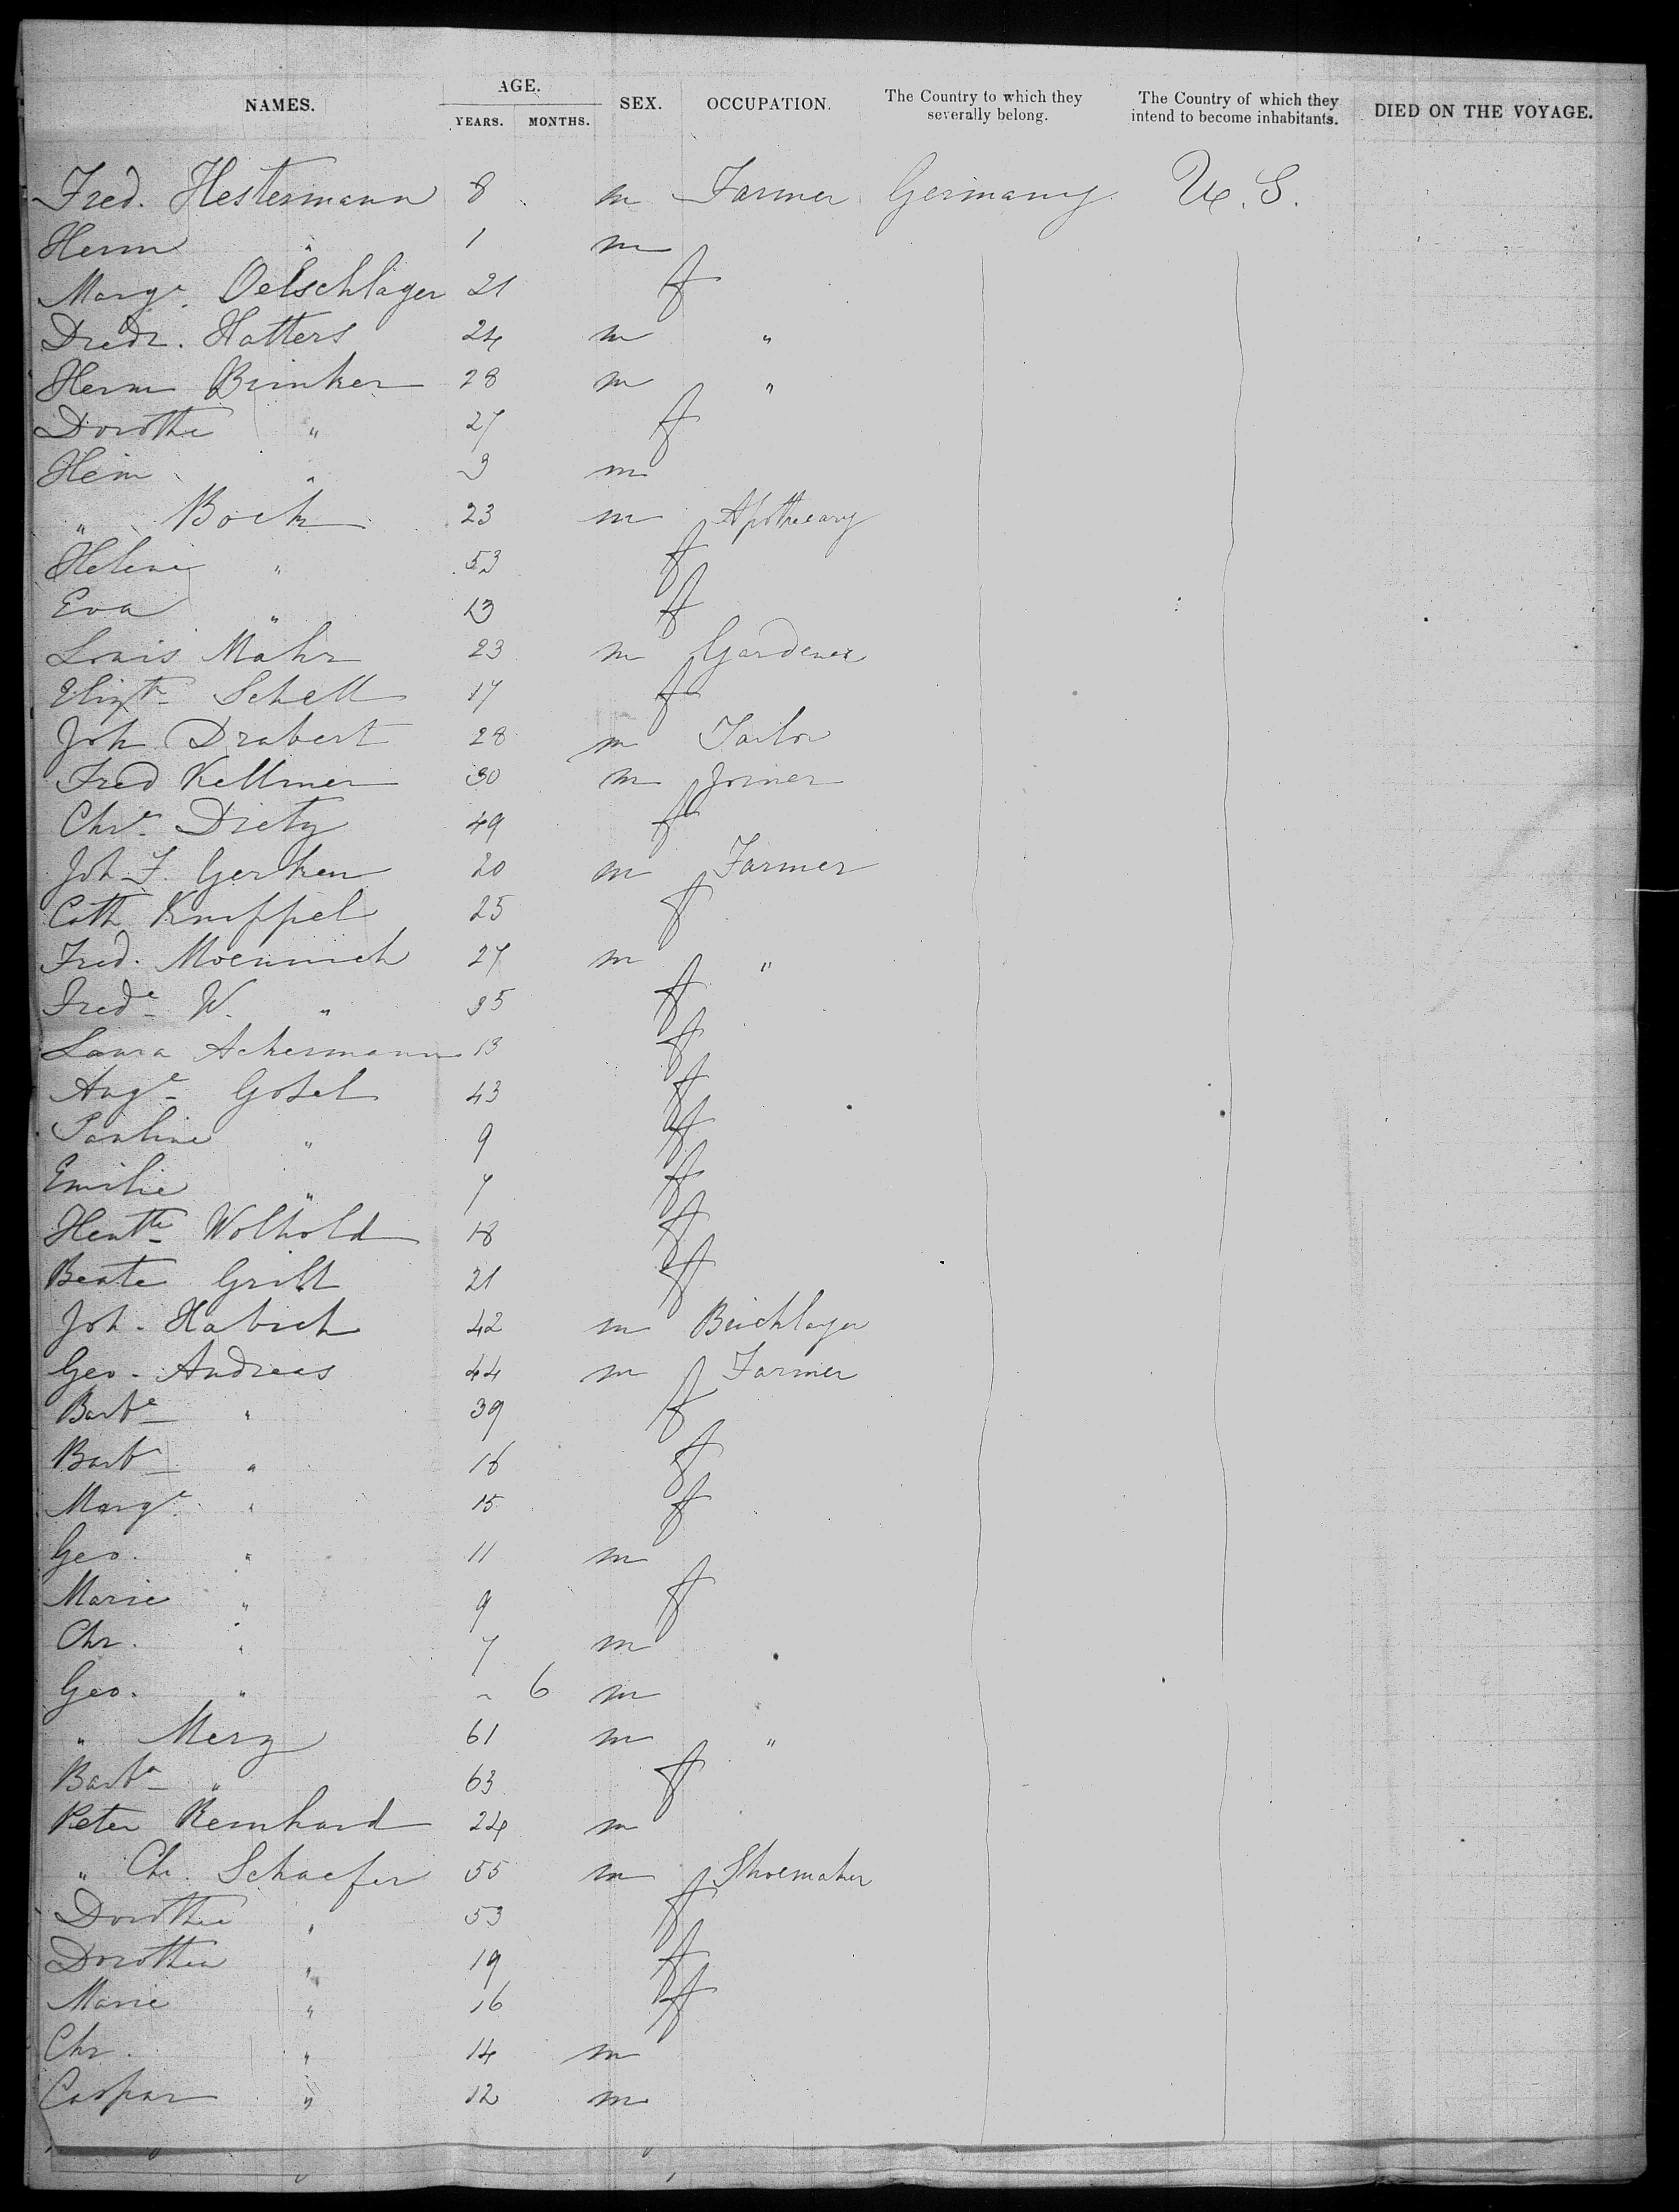 NAMES. AGE. SEX. OCCUPATION. The Country to which they severally belong. The Country of which they intend to become inhabitants. DIED ON THE VOYAGE.
YEARS. MONTHS.
Fred. Hestermann 8 m Farmer Germany U.S.
Herm " 1 m
Marge. Oelschlager 21 f
Diedr. Hatters 24 m "
Herm Brinker 28 m "
Dorothe " 27 f
Hein " 3 m
" Bock 23 m Apothecary
Helene " 53 f
Eva " 13 f
Louis Mahr 23 m Gardener
Elizth Schell 17 f
Joh Drabert 28 m Tailor
Fred Kellmer 30 m Joiner
Chre. Dietz 49 f
Joh. F. Gerken 20 m Farmer
Cath Knippel 25 f
Fred. Moennich 27 m "
Frede W. " 35 f
Laura Ackermann 13 f
Auge Gosel 43 f
Pauline " 9 f
Emilie " 7 f
Hentte Wolhold 18 f
Beate Grill 21 f
Joh. Habich 42 m Bricklayer
Geo. Andreas 44 m Farmer
Barbe " 39 f
Barb " 16 f
Marge. " 15 f
Geo. " 11 m
Marie " 9 f
Chr. " 7 m
Geo. " ~ 6 m
" Merz 61 m "
Barba " 63 f
Peter Reinhard 24 m
" Ch. Schaefer 55 m Shoemaker
Dorothee " 53 f
Dorothea " 19 f
Marie " 16 f
Chr. " 14 m
Caspar " 12 m